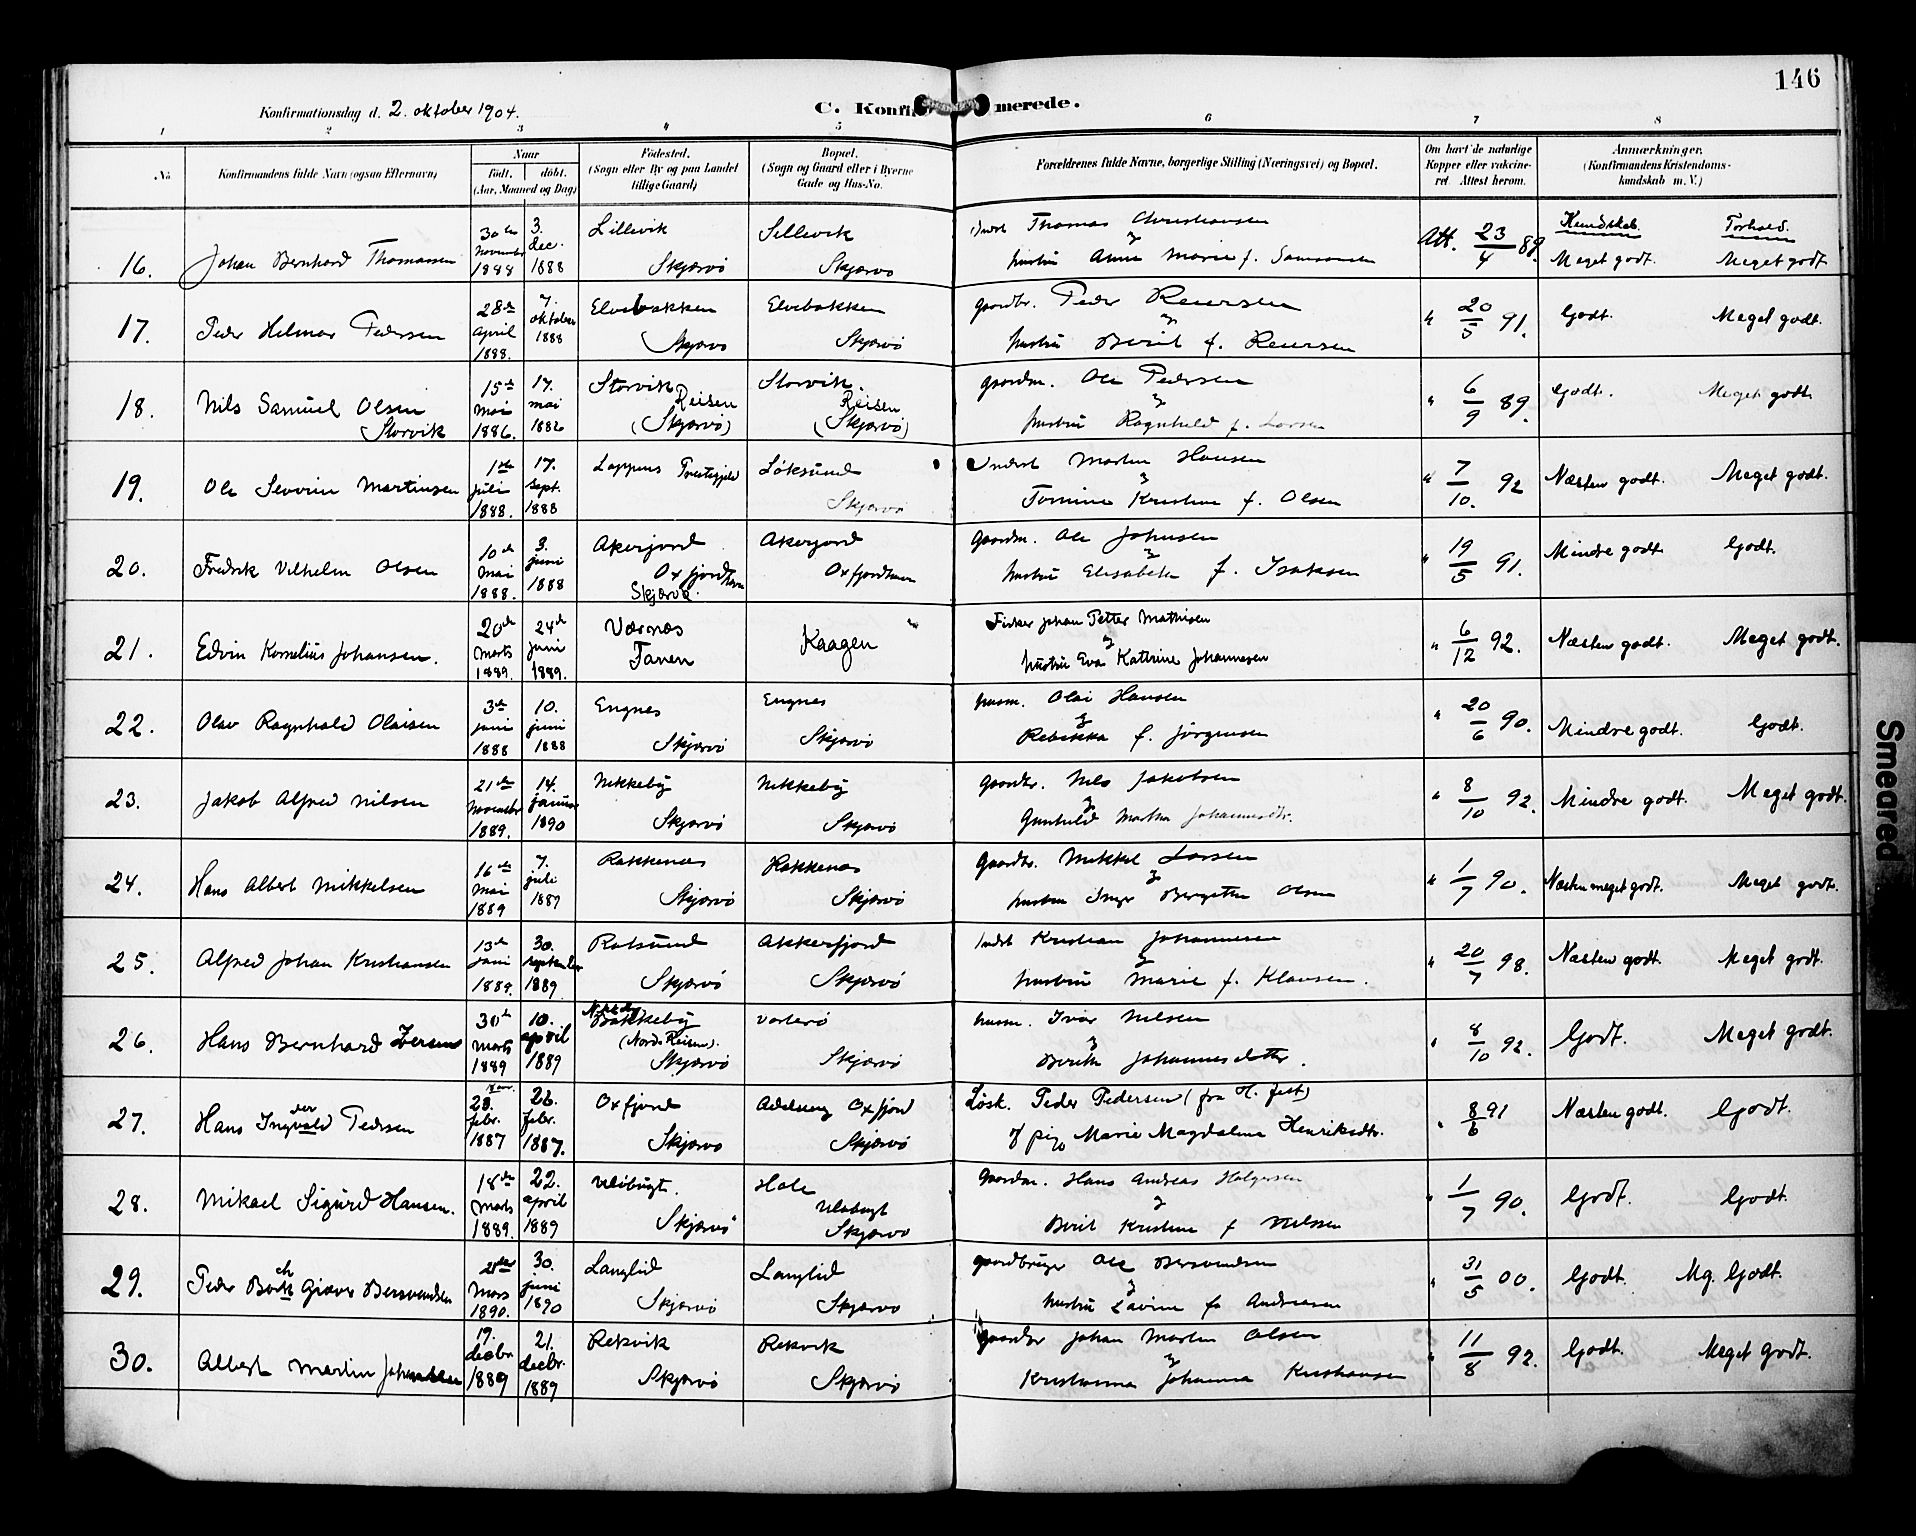 146
Konfirmationsdag d. 2. oktober 1904.
C. Konfirmerede.
1 2 3 4 5 6 7 8
No.
Konfirmandens fulde Navn (ogsaa Efternavn)
Naar
Født. døbt.
(Aar, Maaned og Dag)
Fødested.
(Sogn eller By og paa Landet
tillige Gaard)
Bopæl.
(Sogn og Gaard eller i Byerne
Gade og Hus-No.
Forældrenes fulde Navne, borgerlige Stilling (Næringsvei) og Bopæl.
Om havt de naturlige
Kopper eller vakcine-
ret Attest herom.
Anmærkninger.
(Konfirmandens Kristendoms-
kundskab m. V.)
Kundskab. Forhold.
16. Johan Bernhard Thomassen
30te november 1888
3. dec. 1888
Lillevik
Skjærvø
Lillevik
Skjærvø
Indst Thomas Christiansen
&
hustru Anne Marie f. Samsonsen
Att. 23/4 89.
Meget godt. Meget godt
17. Peder Helmar Pedersen
28de april 1888.
7. oktober 1888
Elvebakken
Skjærvø
Elvebakken
Skjærvø
gaardbr. Peder Reiersen
&
hustru Berit f. Reiersen
" 20/5 91.
Godt. Meget godt.
18. Nils Samuel Olsen
Storvik
15de mai 1886.
17. mai 1886
Storvik
Reisen
(Skjærvø)
Storvik.
Reisen
(Skjærvø)
gaardm. Ole Pedersen
&
hustru Ragnhild f. Larsen
" 6/9 89.
Godt. Meget godt.
19. Ole Severin Martinsen
1ste juli 1888.
17. sept. 1888
Loppens Prestegjeld
Løksund
Skjærvø
Indst Morten Hansen
&
Tomine Kristine f. Olsen
" 7/10. 92
Næsten godt. Meget godt.
20. Fredrik Vilhelm Olsen
10de mai 1888.
3. juni 1888
Akerjord
Oxfjordhavn
Skjærvø.
Akerjord
Oxfjordhavn
Gaardm. Ole Johnsen
&
hustru Elisabeth f. Isaksen
" 19/5 91.
Mindre godt. Godt.
21. Edvin Kornelius Johansen.
20de marts 1889.
24de juni 1889.
Værnæs
Tanen
Kaagen
Fisker Johan Petter Mathisen
&
hustru Eva Kattrine Johannesen
" 6/12 92.
Næsten godt. Meget godt.
22. Olav Ragnhald Olaisen
3de juni 1888
10. juni 1888
Engnes
Skjærvø
Engnes
Skjærvø
husm. Olai Hansen
&
Rebekka f. Jørgensen
" 20/6 90.
Mindre godt. Godt.
23. Jakob Alfred Nilsen
21de november 1889.
14. januar 1890
Nikkeby
Skjærvø
Nikkeby
Skjærvø
Gaardbr. Nils Jakobsen
&
Gunhild Martha Johannesdtr.
" 8/10 92.
Mindre godt. Meget godt.
24. Hans Albert Mikkelsen
16de mai 1889
7. juli 1889
Rakkenæs
Skjærvø
Rakkenæs
Skjærvø
Gaardbr. Mikkel Larsen
&
hustru Inger Bergitte Olsen
" 1/7 90.
Næsten meget godt. Meget godt.
25. Alfred Johan Kristiansen
13de juni 1889.
30. september 1889
Rotsund
Skjærvø
Akkerfjord
Skjærvø
Indst Kristian Johannesen
&
hustru Marie f. Klausen.
" 20/7 98.
Næsten godt. Meget godt.
26. Hans Bernhard Iversen
30te marts 1889
10. april 1889
Bakkeby
(Nord Reisen).
Skjærvø
Vorterø
Skjærvø
husm. Ivar Nilsen
&
Berith Johannesdatter.
" 8/10 92.
Godt. Meget godt.
27. Hans Ingvald Pedersen
28. febr. 1887
26. febr. 1887.
Oxfjord
Skjærvø
Oxfjord
Skjærvø
Løsk. Peder Pedersen (fra H. fest)
& pige Marie Magdalena Henriksdtr.
" 8/6 91
Næsten godt. Godt.
28. Mikael Sigurd Hansen.
18de marts 1889.
22. april 1889
Ulöbugt.
Skjærvø
Hole
Uløbugt
Skjærvø
Gaardm. Hans Andreas Holgersen
&
Berit Kristine f Nilssen
" 1/7 90.
Godt. Godt.
29. Peder Giæver Bersvendsen
Mars 1890.
30. juni 1890
Langlid
Skjærvø
Langlid
Skjærvø
gaardbruger Ole Bersvendsen
&
hustru Lavine f. Andreasen
" 31/5 00.
Godt. Mg. Godt.
30. Albert Martin Johansen
19. decbr. 1889
21. decbr. 1889
Rekvik
Skjærvø
Rekvik
Skjærvø
gaardbr Johan Martin Olsen
&
Kristianna Johanna Kristiansen
" 11/8 92.
Godt. Meget godt.
Smeared